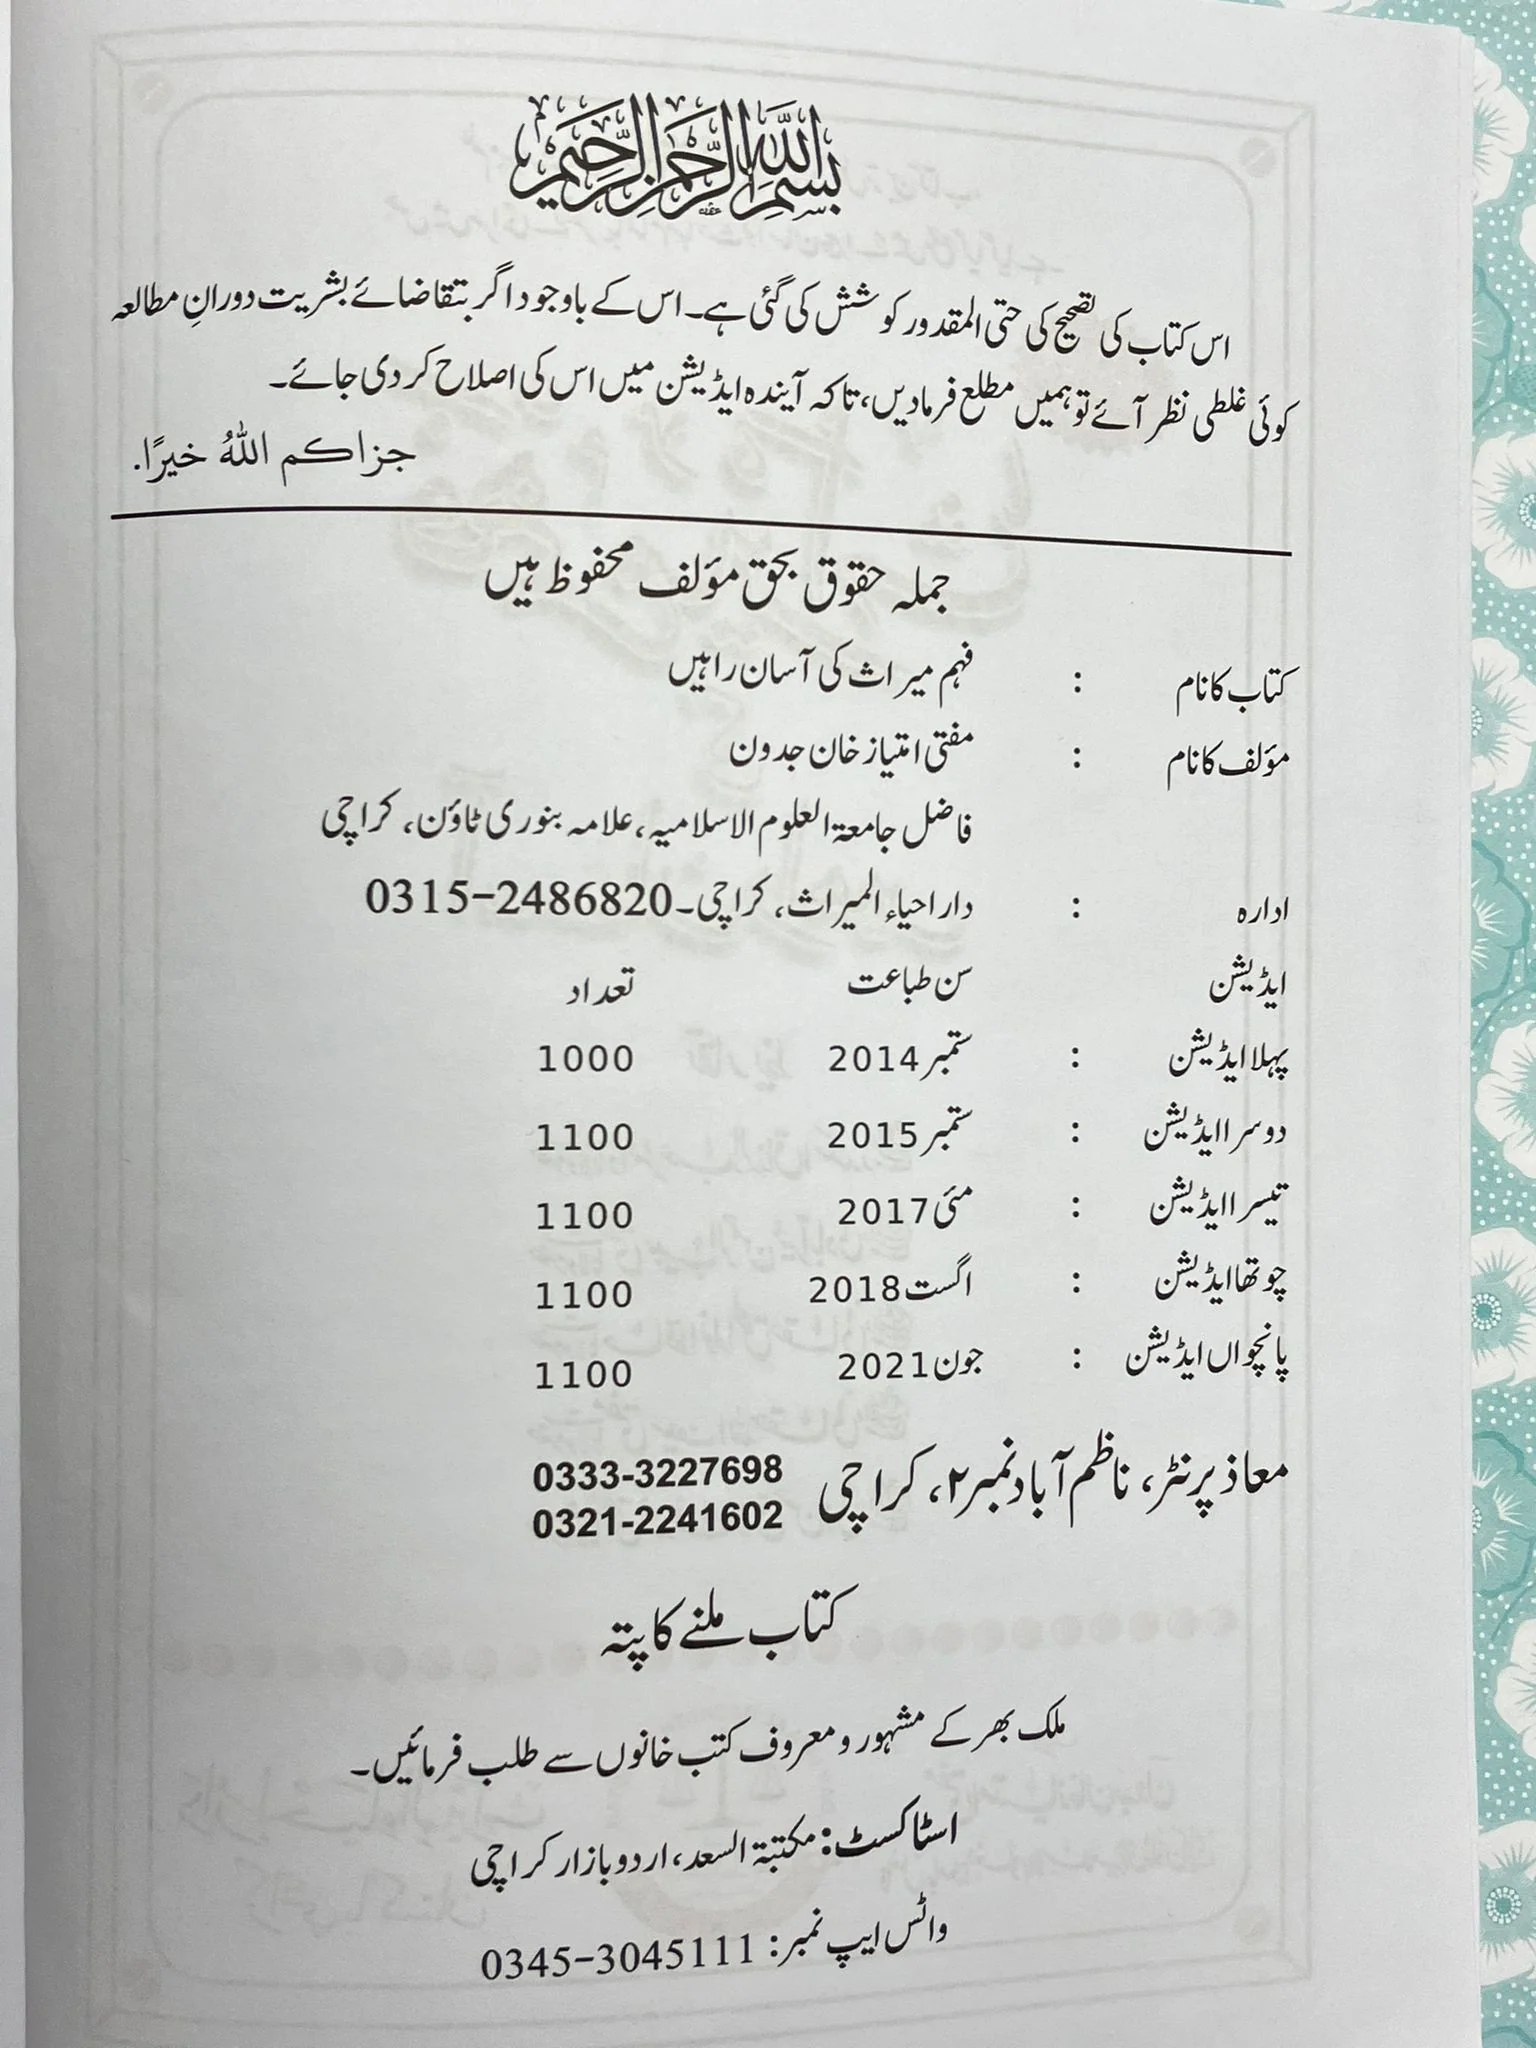 بسم الله الرحمن الرحيم
اس کتاب کی تصحیح کی حتی المقدور کوشش کی گئی ہے۔ اس کے باوجود اگر بتقاضائے بشریت دورانِ مطالعہ
کوئی غلطی نظر آئے تو ہمیں مطلع فرمادیں، تاکہ آیندہ ایڈیشن میں اس کی اصلاح کردی جائے۔
جزاكم اللهُ خيرًا.
جملہ حقوق بحق مؤلف محفوظ ہیں
کتاب کا نام : فہم میراث کی آسان راہیں
مؤلف کا نام : مفتی امتیاز خان جدون
فاضل جامعۃ العلوم الاسلامیہ، علامہ بنوری ٹاؤن، کراچی
ادارہ : دار احیاء المیراث، کراچی۔ 0315-2486820
ایڈیشن سن طباعت تعداد
پہلا ایڈیشن : ستمبر 2014 1000
دوسرا ایڈیشن : ستمبر 2015 1100
تیسرا ایڈیشن : مئی 2017 1100
چوتھا ایڈیشن : اگست 2018 1100
پانچواں ایڈیشن : جون 2021 1100
معاذ پرنٹر، ناظم آباد نمبر ۲، کراچی 0333-3227698
0321-2241602
کتاب ملنے کا پتہ
ملک بھر کے مشہور و معروف کتب خانوں سے طلب فرمائیں۔
اسٹاکسٹ: مکتبۃ السعد، اردو بازار کراچی
واٹس ایپ نمبر: 0345-3045111